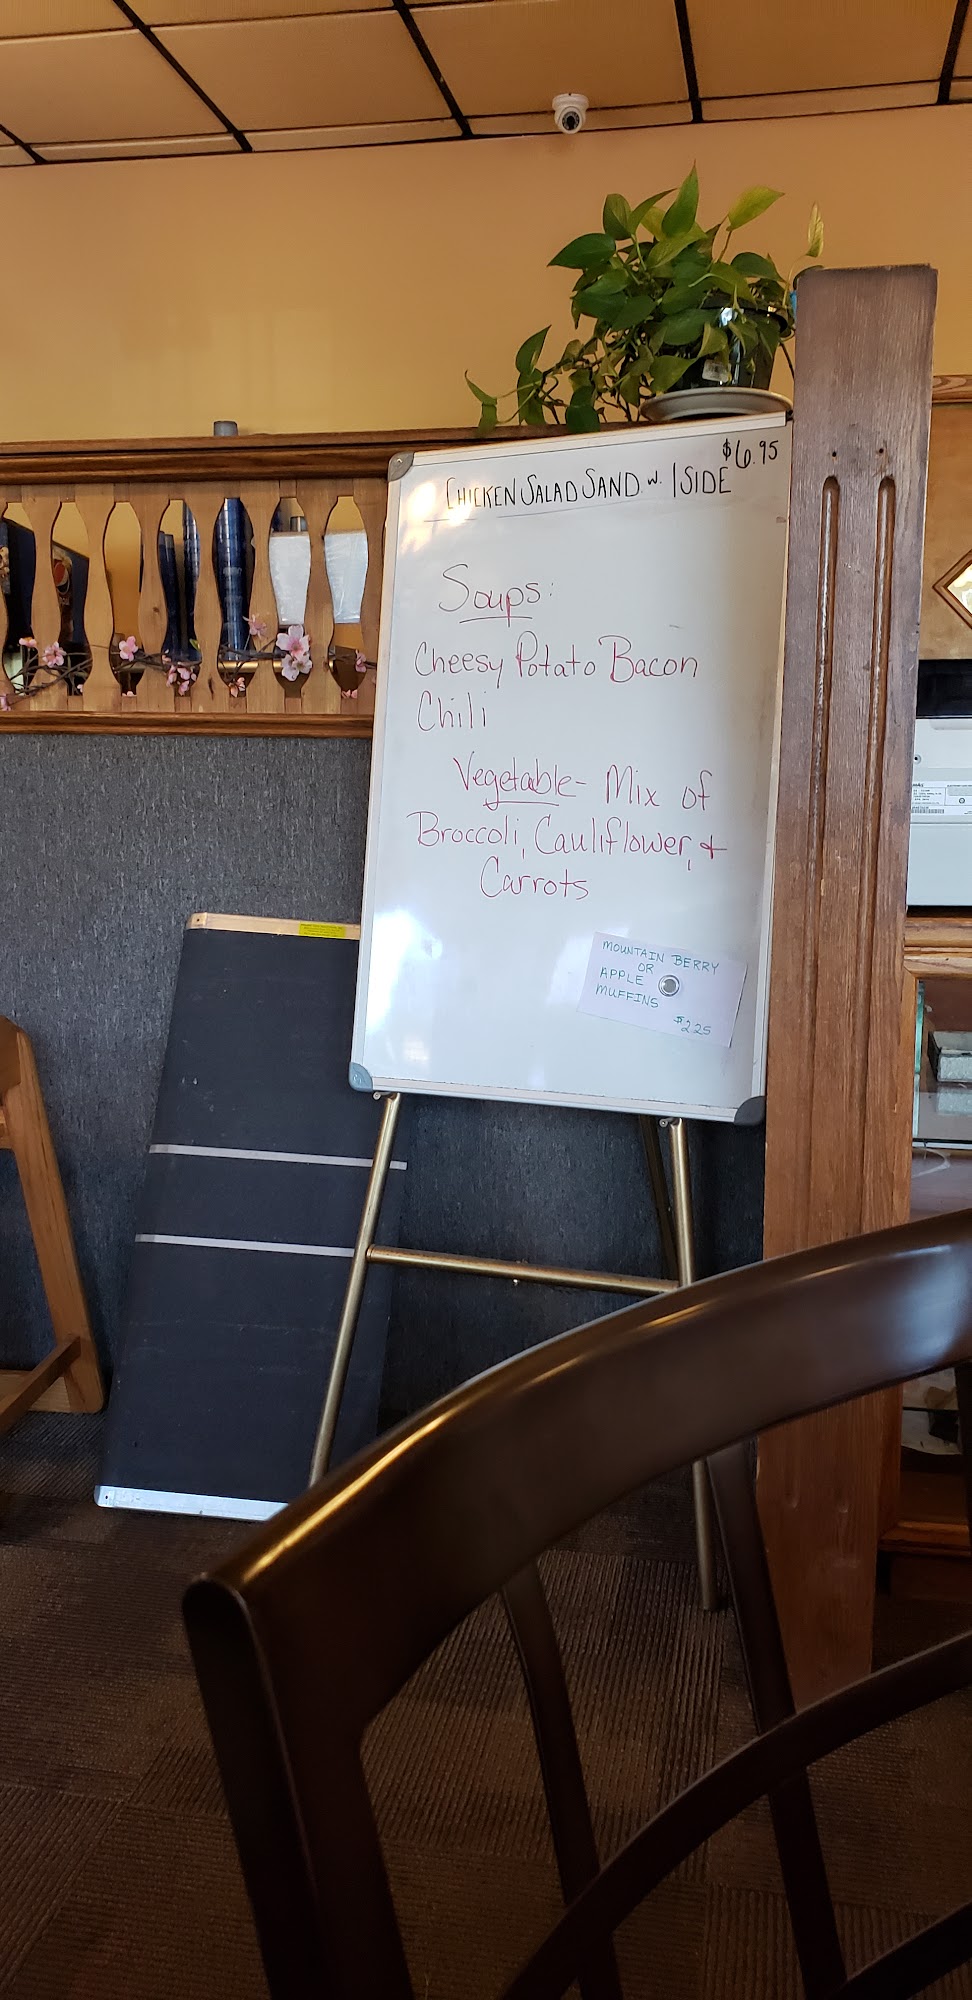 $6.95
CHICKEN SALAD SAND W. 1 SIDE
Soups:
Cheesy Potato Bacon
Chili
Vegetable- Mix of
Broccoli, Cauliflower, +
Carrots
MOUNTAIN BERRY
OR
APPLE
MUFFINS
$2.25